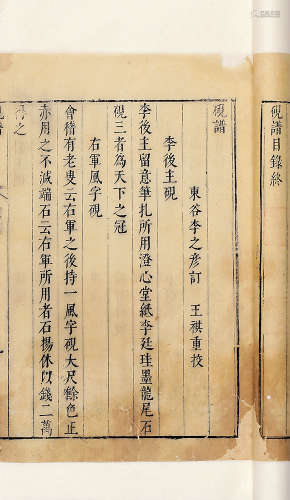 硯譜目錄終
硯譜
東谷李之彥訂　王祺重挍
李後主硯
李後主留意筆札所用澄心堂紙李廷珪墨龍尾石
硯三者為天下之冠
右軍風字硯
會稽有老叟云右軍之後持一風字硯大尺餘色正
赤用之不減端石云右軍所用者石揚休以錢二萬
得之